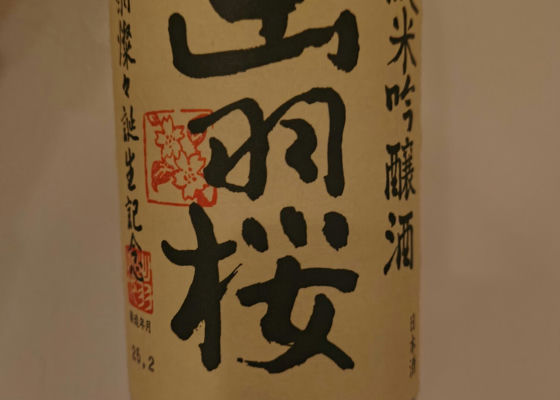 純米吟醸酒
日本酒
出羽桜
燦々誕生記念
製造年月
25.2